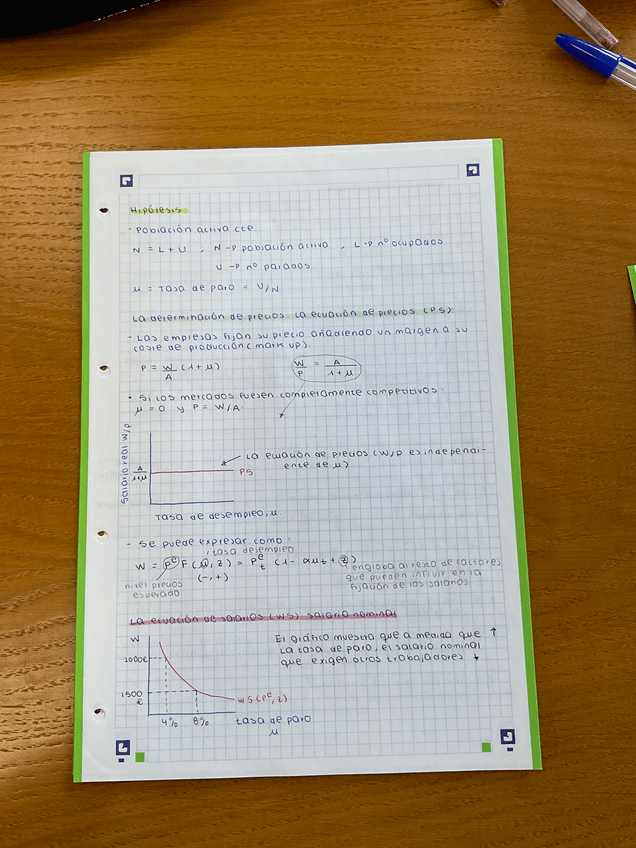 Hipótesis
- Población activa cte.
N = L + U , N → población activa , L → nº ocupados
U → nº parados
μ = Tasa de paro = U/N
La determinación de precios. La ecuación de precios (PS)
- Las empresas fijan su precio añadiendo un margen a su
coste de producción (mark up).
P = W/A (1+μ)
W/P = A/1+μ
• Si los mercados fuesen completamente competitivos.
μ = 0 y P = W/A.
Salario real W/P
La ecuación de precios (W/P es independi-
ente de μ)
A/1+μ
PS
Tasa de desempleo, μ.
- Se puede expresar como:
tasa desempleo
W = Pe F(μ, z) = Pet (1 - αμt + z)
(-, +)
nivel precios
esperado
engloba al resto de factores
que pueden influir en la
fijación de los salarios
La ecuación de salarios (WS) salario nominal
W
El gráfico muestra que a medida que ↑
la tasa de paro, el salario nominal
que exigen otros trabajadores ↓
2000€
1500
€
WS (Pe, z)
4% 8% tasa de paro
μ